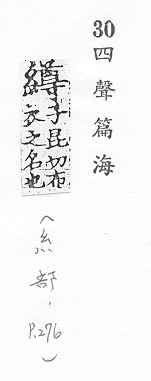 30四聲篇海
繜子昆切布
衣之名也
(糸部,P.276)